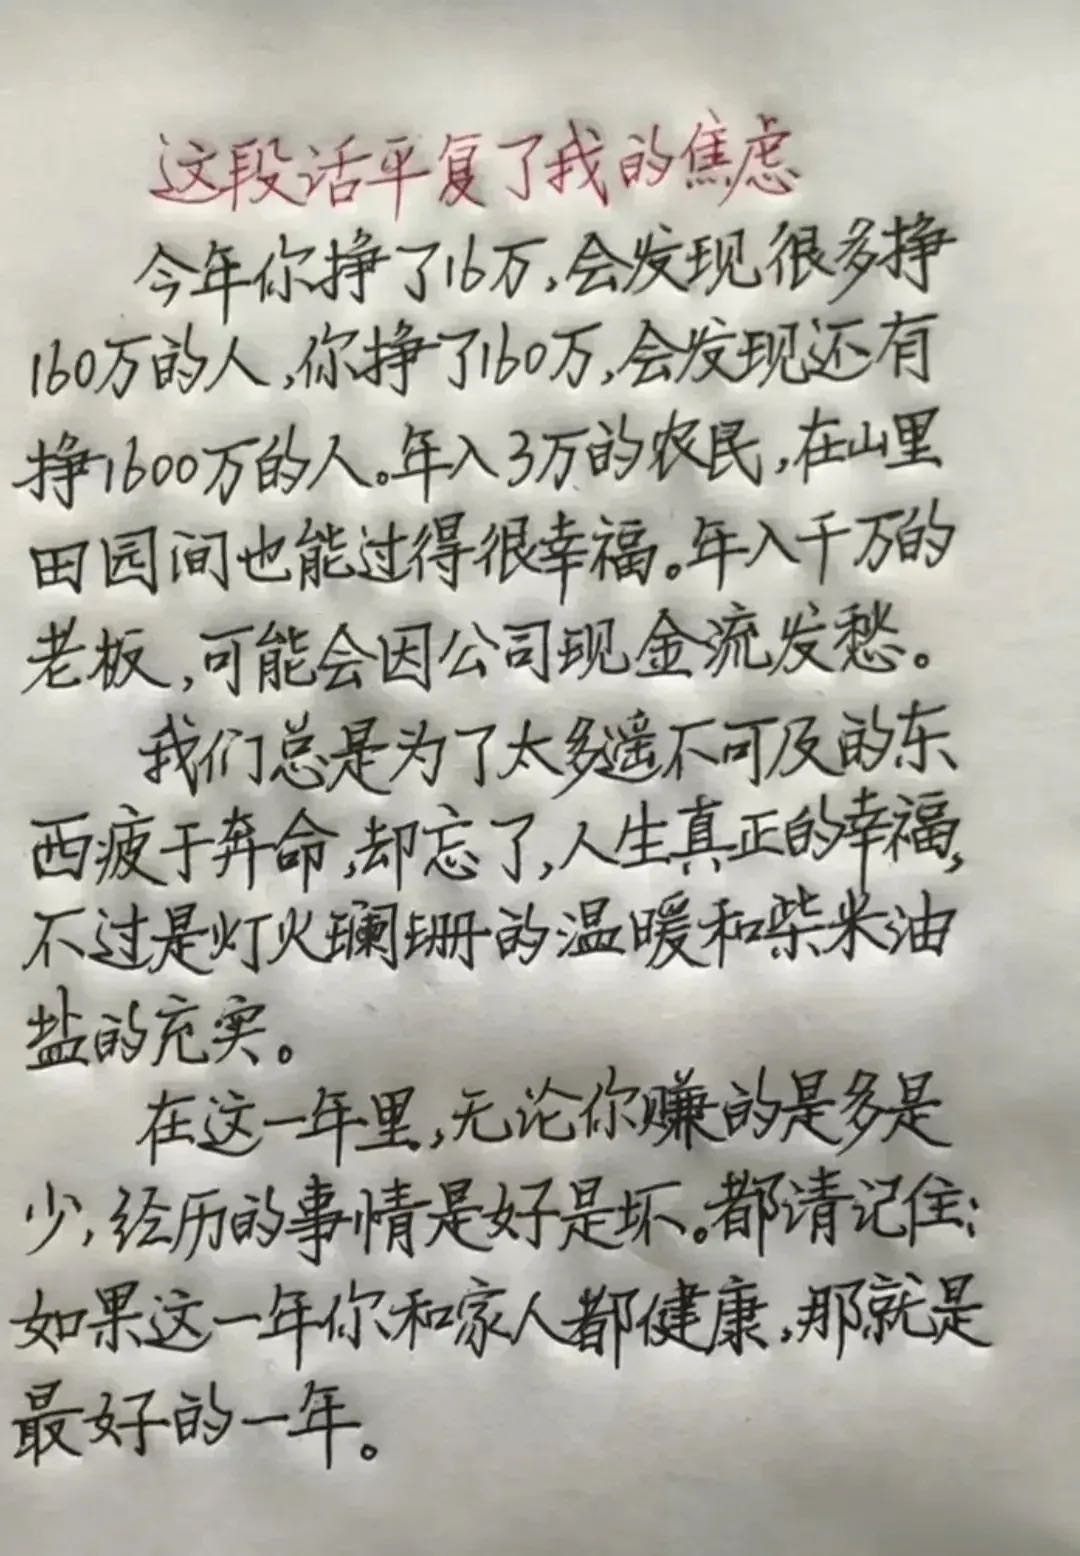 这段话平复了我的焦虑
今年你挣了16万,会发现很多挣
160万的人,你挣了160万,会发现还有
挣1600万的人。年入3万的农民,在山里
田园间也能过得很幸福。年入千万的
老板,可能会因公司现金流发愁。
我们总是为了太多遥不可及的东
西疲于奔命,却忘了,人生真正的幸福,
不过是灯火斓珊的温暖和柴米油
盐的充实。
在这一年里,无论你赚的是多是
少,经历的事情是好是坏。都请记住:
如果这一年你和家人都健康,那就是
最好的一年。